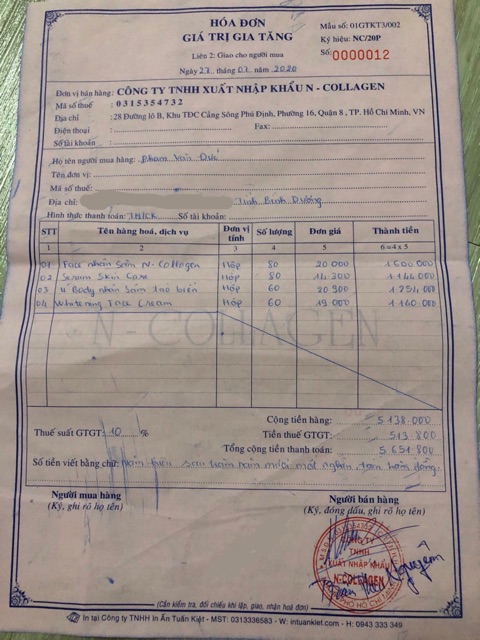 HÓA ĐƠN
GIÁ TRỊ GIA TĂNG
Mẫu số: 01GTKT3/002
Ký hiệu: NC/20P
Liên 2: Giao cho người mua
Số: 0000012
Ngày 27 tháng 07 năm 2020
Đơn vị bán hàng: CÔNG TY TNHH XUẤT NHẬP KHẨU N - COLLAGEN
Mã số thuế : 0315354732
Địa chỉ : 28 Đường lô B, Khu TĐC Cảng Sông Phú Định, Phường 16, Quận 8 , TP. Hồ Chí Minh, VN
Điện thoại : Fax:
Số tài khoản :
Họ tên người mua hàng: Phạm Văn Đức
Tên đơn vị:
Mã số thuế:
Địa chỉ: Tỉnh Bình Dương
Hình thức thanh toán: TM/CK Số tài khoản:
STT Tên hàng hoá, dịch vụ Đơn vị tính Số lượng Đơn giá Thành tiền
1 2 3 4 5 6 = 4 x 5
01 Face nhân sâm N-Collagen Hộp 80 20 000 1 600 000
02 Serum Skin Case Hộp 80 14 300 1 144 000
03 Ủ Body nhân sâm tảo biển Hộp 60 20 900 1 254 000
04 Whitening Face Cream Hộp 60 19 000 1 140 000
N - COLLAGEN
Cộng tiền hàng: 5 138 000
Thuế suất GTGT: 10 % Tiền thuế GTGT: 513 800
Tổng cộng tiền thanh toán: 5 651 800
Số tiền viết bằng chữ: Năm triệu sáu trăm năm mươi mốt nghìn tám trăm đồng.
Người mua hàng
(Ký, ghi rõ họ tên)
Người bán hàng
(Ký, đóng dấu, ghi rõ họ tên)
CÔNG TY
TNHH
XUẤT NHẬP KHẨU
N-COLLAGEN
(Cần kiểm tra, đối chiếu khi lập, giao, nhận hoá đơn)
In tại Công ty TNHH In Ấn Tuấn Kiệt - MST: 0313336583 - W: intuankiet.com - H: 0943 333 349